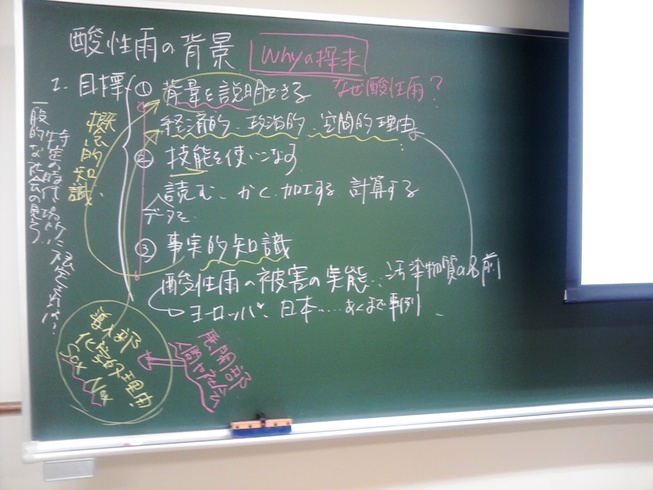 酸性雨の背景
Whyの探求
2. 目標
① 背景を説明できる
なぜ酸性雨?
経済的、政治的、空間的理由
② 技能を使いこなす
読む、かく、加工する、計算する
データを
③ 事実的知識
酸性雨の被害の実態…汚染物質の名前
ヨーロッパ、日本……あくまで事例
概念的知識
一般的な社会の見方
導入部
化学的理由
Sox Nox
展開部
人間や社会